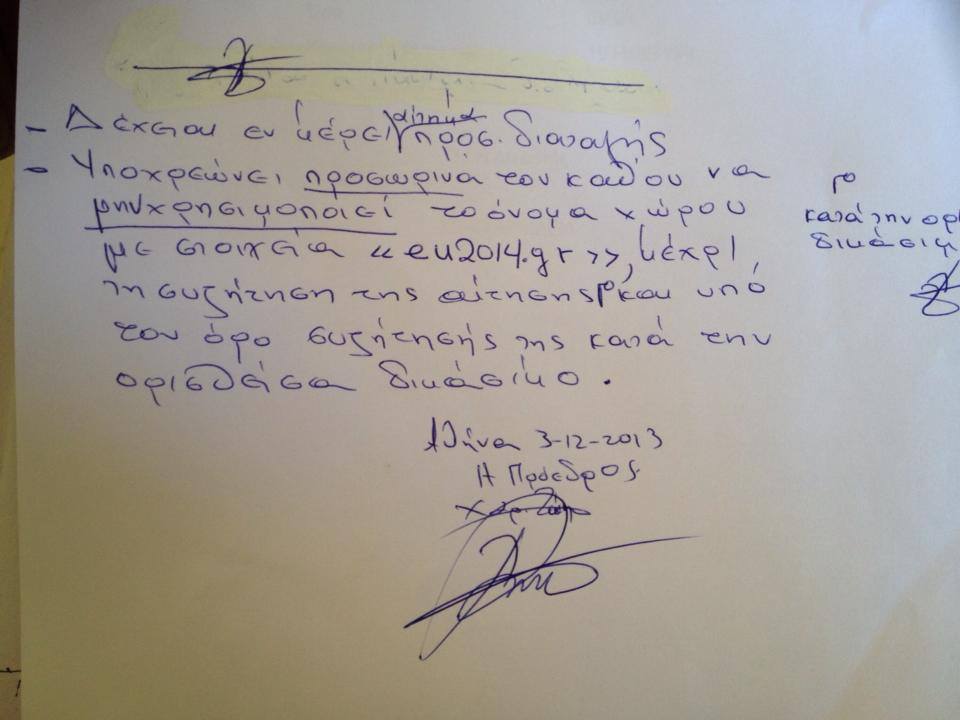 - Δέχεται εν μέρει αίτημα προσ. διαταγής
- Υποχρεώνει προσωρινά τον καθού να
μην χρησιμοποιεί το όνομα χώρου
με στοιχεία «eu2014.gr», μέχρι
τη συζήτηση της αίτησης Γ και υπό
τον όρο συζήτησής της κατά την
ορισθείσα δικάσιμο.
Γ
κατά την ορ
δικάσιμ
Αθήνα 3-12-2013
Η Πρόεδρος